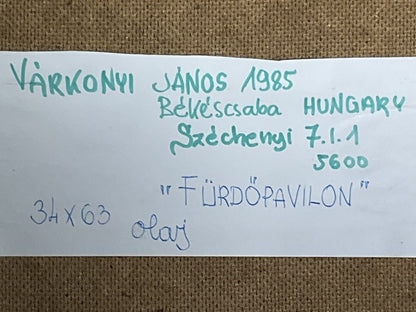 VÁRKONYI JÁNOS 1985
Békéscsaba HUNGARY
Széchenyi 7.I.1
5600
"FÜRDŐPAVILON"
34x63 olaj